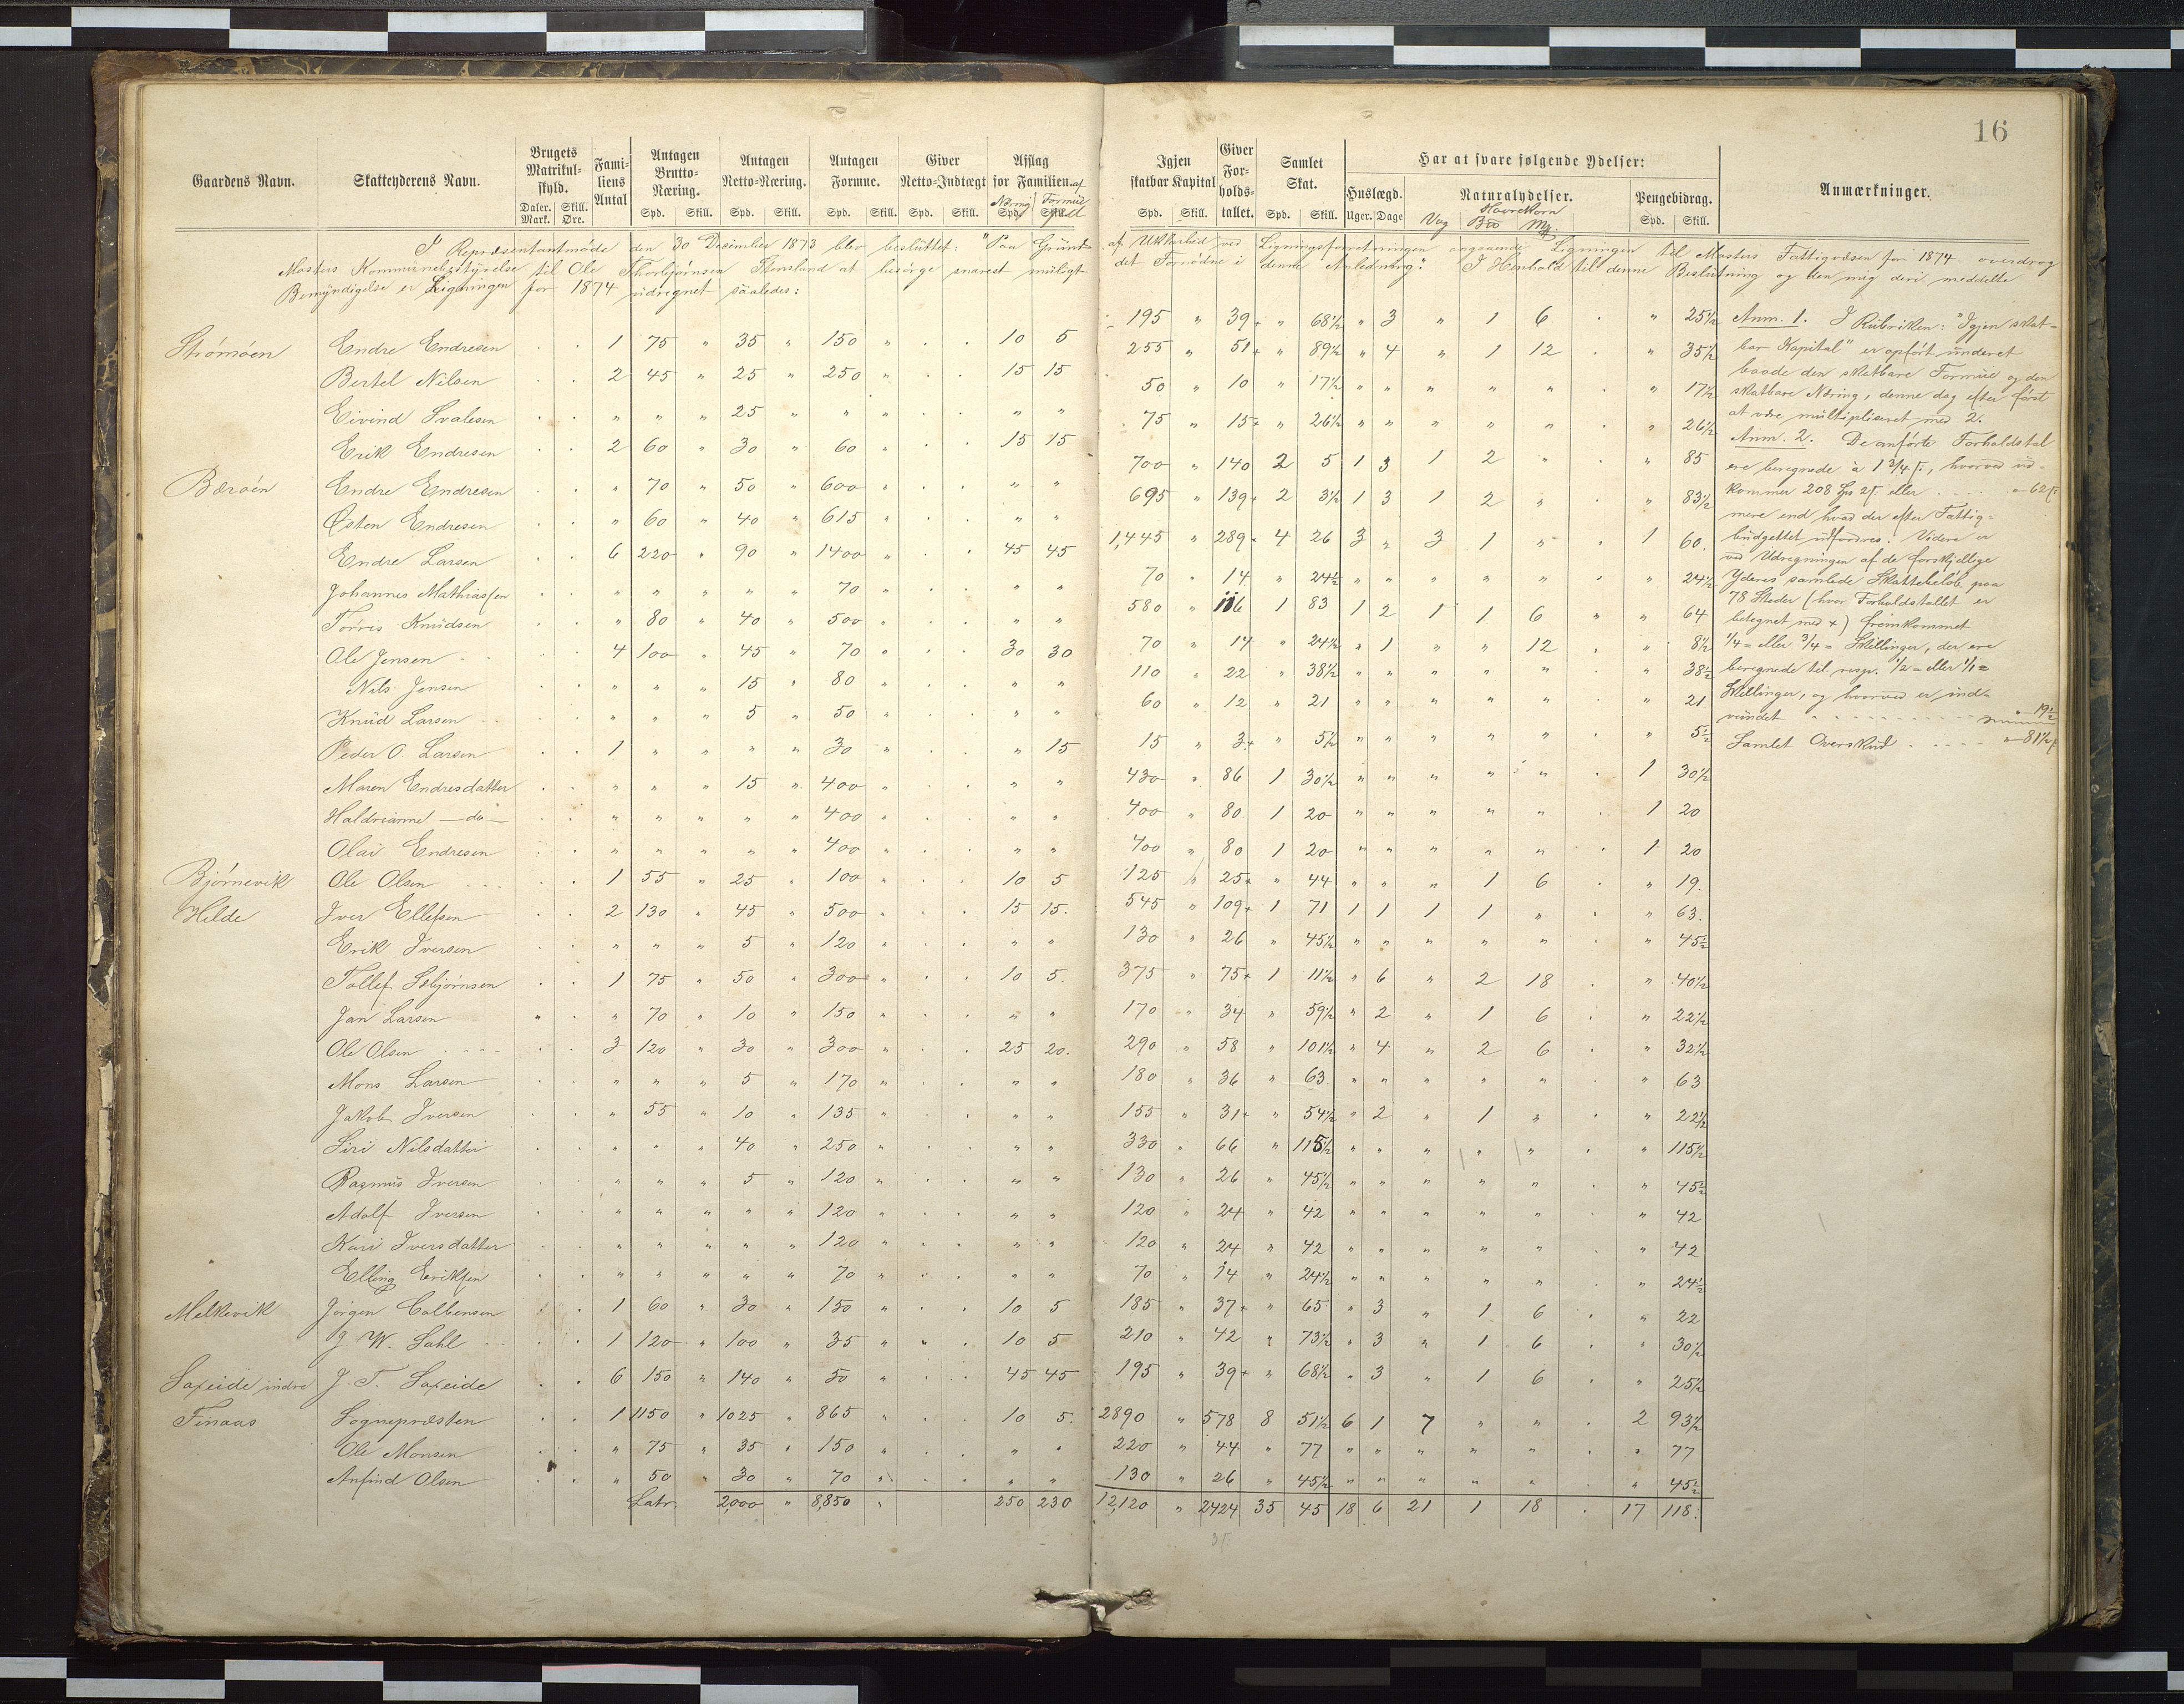 16
Gaardens Navn. Skatteyderens Navn. Brugets Matrikul-skyld. Daler. Mark. Skill. Øre. Fami-liens Antal Antagen Brutto-Næring. Spd. Skill. Antagen Netto-Næring. Spd. Skill. Antagen Formue. Spd. Skill. Giver Netto-Indtægt Spd. Skill. Afslag for Familien. af Næring Formue Spd. Spd. Igjen skatbar Kapital Spd. Skill. Giver For-holds-tallet. Samlet Skat. Spd. Skill. Har at svare følgende Ydelser: Huslægd. Uger. Dage Naturalydelser. Havrekorn Vog Bio Mg Pengebidrag. Spd. Skill. Anmærkninger.
I Repræsentantmøde den 30 December 1873 blev besluttet: "Paa Grund af Uklarhed ved Ligningsforretningen angaaende Ligningen til Mosters Fattigvæsen for 1874 overdrog
Mosters Kommunebestyrelse til Ole Thorbjørnsen Steneland at besørge snarest muligt det Fornødne i denne Anledning." I Henhold til denne Beslutning og den mig deri meddelte
Bemyndigelse er Ligningen for 1874 udregnet saaledes:
Strømøen Endre Endresen . . 1 75 " 35 " 150 " . . 10 5 195 " 39+ " 68½ " 3 " 1 6 . " 25½
Bertel Nilsen . . 2 45 " 25 " 250 " . . 15 15 255 " 51+ " 89½ " 4 " 1 12 . " 35½
Eivind Svalesen . . " " " 25 " " " . . " " 50 " 10 " 17½ " " " " " . " 17½
Erik Endresen . . 2 60 " 30 " 60 " . . 15 15 75 " 15+ " 26½ " " " " " . " 26½
Bærøen Endre Endresen . . " 70 " 50 " 600 " . . " " 700 " 140 2 5 1 3 1 2 " . " 85
Østen Endresen . . " 60 " 40 " 615 " . . " " 695 " 139+ 2 3½ 1 3 1 2 " . " 83½
Endre Larsen . . 6 220 " 90 " 1400 " . . 45 45 1,445 " 289+ 4 26 3 " 3 1 " " 1 60.
Johannes Mathiassen . . " " " " " 70 " . . " " 70 " 14 " 24½ " " " " " . " 24½
Torris Knudsen . . " 80 " 40 " 500 " . . " " 580 " 116 1 83 1 2 1 1 6 " " 64
Ole Jensen . . 4 100 " 45 " 70 " . . 30 30 70 " 14 " 24½ " 1 " " 12 . " 8½
Nils Jensen . . " " " 15 " 80 " . . " " 110 " 22 " 38½ " " " " " . " 38½
Knud Larsen . . " " " 5 " 50 " . . " " 60 " 12 " 21 " " " " " . " 21
Peder O. Larsen . . 1 " " " " 30 " . . " 15 15 " 3+ " 5½ " " " " " . " 5½
Maren Endresdatter . . " " " 15 " 400 " . . " " 430 " 86 1 30½ " " " " " . 1 30½
Haldrianne — do — . . " " " " " 400 " . . " " 400 " 80 1 20 " " " " " . 1 20
Olai Endresen . . " " " " " 400 " . . " " 400 " 80 1 20 " " " " " . 1 20
Bjørnevik Ole Olsen . . 1 55 " 25 " 100 " . . 10 5 125 " 25+ " 44 " " " 1 6 . " 19.
Hilde Iver Ellefsen . . 2 130 " 45 " 500 " . . 15 15. 545 " 109+ 1 71 1 1 1 1 " . " 63.
Erik Iversen . . " " " 5 " 120 " . . " " 130 " 26 " 45½ " " " " " . " 45½
Tollef Sebjørnsen . . 1 75 " 50 " 300 " . . 10 5. 375 " 75+ 1 11½ " 6 " 2 18 . " 40½
Jan Larsen " . " 70 " 10 " 150 " . . " " 170 " 34 " 59½ " 2 " 1 6 . " 22½
Ole Olsen . . 3 120 " 30 " 300 " . . 25 20. 290 " 58 " 101½ " 4 " 2 6 . " 32½
Mons Larsen . . " " " 5 " 170 " . . " " 180 " 36 " 63 " " " " " . " 63
Jakob Iversen . . " 55 " 10 " 135 " . . " " 155 " 31+ " 54½ " 2 " 1 " . " 22½
Siri Nilsdatter . . " " " 40 " 250 " . . " " 330 " 66 " 115½ " " " " " . " 115½
Rasmus Iversen . . " " " 5 " 120 " . . " " 130 " 26 " 45½ " " " " " . " 45½
Adolf Iversen . . " " " " " 120 " . . " " 120 " 24 " 42 " " " " " . " 42
Kari Iversdatter . . " " " " " 120 " . . " " 120 " 24 " 42 " " " " " . " 42
Elling Eriksen . . " " " " " 70 " . . " " 70 " 14 " 24½ " " " " " . " 24½
Melkevik Jørgen Colbensen . . 1 60 " 30 " 150 " . . 10 5 185 " 37+ " 65 " 3 " 1 6 . " 22
J W. Sahl . . 1 120 " 100 " 35 " " . 10 5 210 " 42 " 73½ " 3 " 1 6 . " 30½
Saxeide indre J. T. Saxeide . . 6 150 " 140 " 50 " . . 45 45 195 " 39+ " 68½ " 3 " 1 6 . " 25½
Finaas Sognepresten . . 1 1150 " 1025 " 865 " . . 10 5. 2890 " 578 8 51½ 6 1 7 " " . 2 93½
Ole Monsen . . " 75 " 35 " 150 " . . " " 220 " 44 " 77 " " " " " . " 77
Anfind Olsen . . " 50 " 30 " 70 " . . " " 130 " 26 " 45½ " " " " " . " 45½
Latr. 2,000 " 8,850 " 250 230 12,120 " 2424 35 45 18 6 21 1 18 . 17 118.
Anm. 1. I Rubriken: "Igjen skat-
bar Kapital" er opført underet
baade den skatbare Formue og den
skatbare Næring, denne dog efter først
at være multipliseret med 2.
Anm. 2. De anførte Forholdstal
ere beregnede à 1 3/4 ß., hvorved ud-
kommer 208 Sp 2ß. eller . . . . " 62ß.
mere end hvad der efter Fattig-
budgettet udfordres. Videre er
ved Udregningen af de forskjellige
Yderes samlede Skattebeløb paa
78 Steder (hvor Forholdstallet er
betegnet med +) fremkommet
1/4 = eller 3/4 = Skillinger, der ere
beregnede til resp. 1/2 = eller 1/1 =
Skillinger, og hvorved er ind-
vundet . . . . . . . " 19½
Samlet Overskud . . . . . " 81½ ß